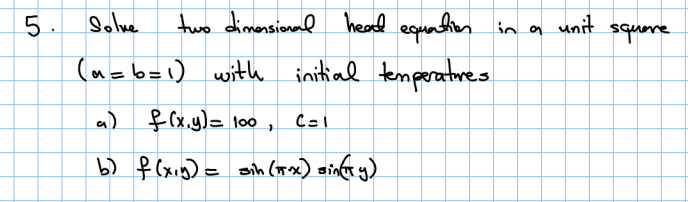 5. Solve two dimensional heat equation in a unit square
(a=b=1) with initial temperatures
a) f(x,y)= 100 , C=1
b) f(x,y) = sin(πx) sin(πy)